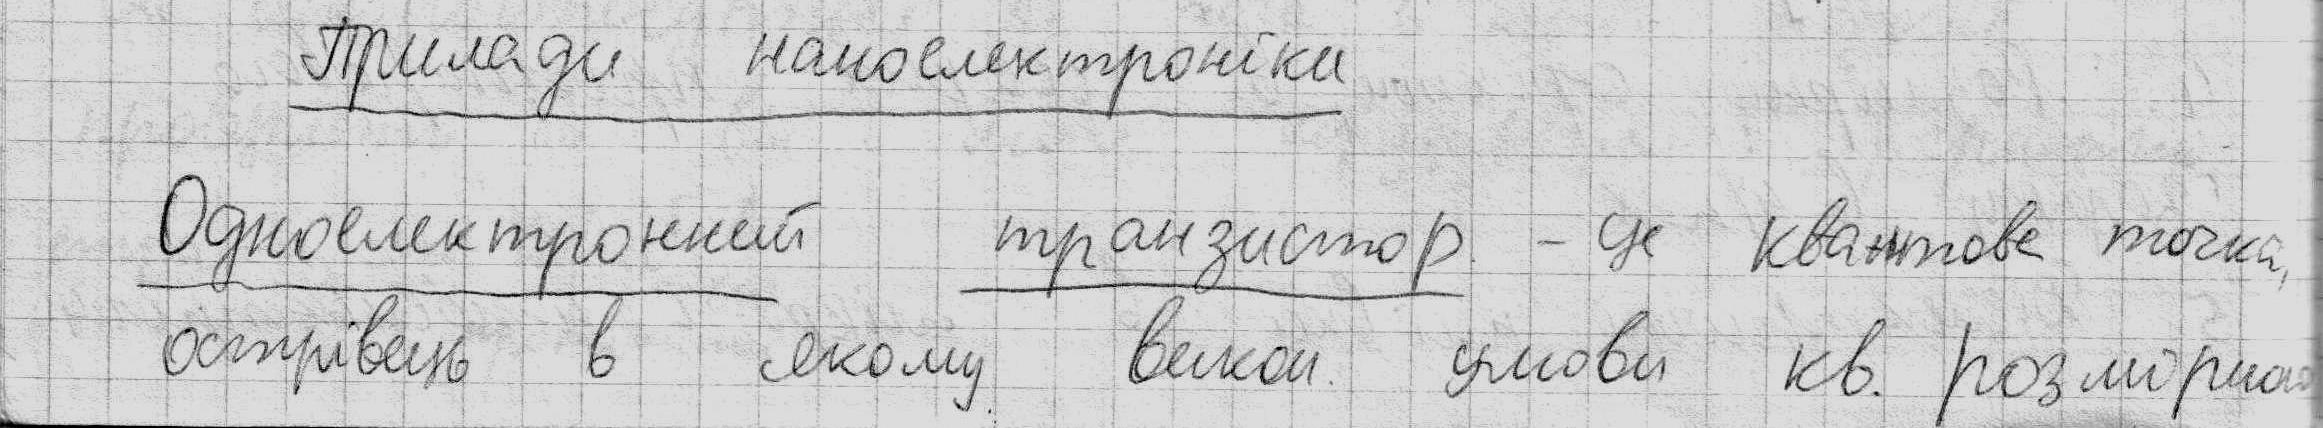 Прилади наноелектроніки
Одноелектронний транзистор - це квантова точка,
острівець в якому викон. умови кв. розмірного